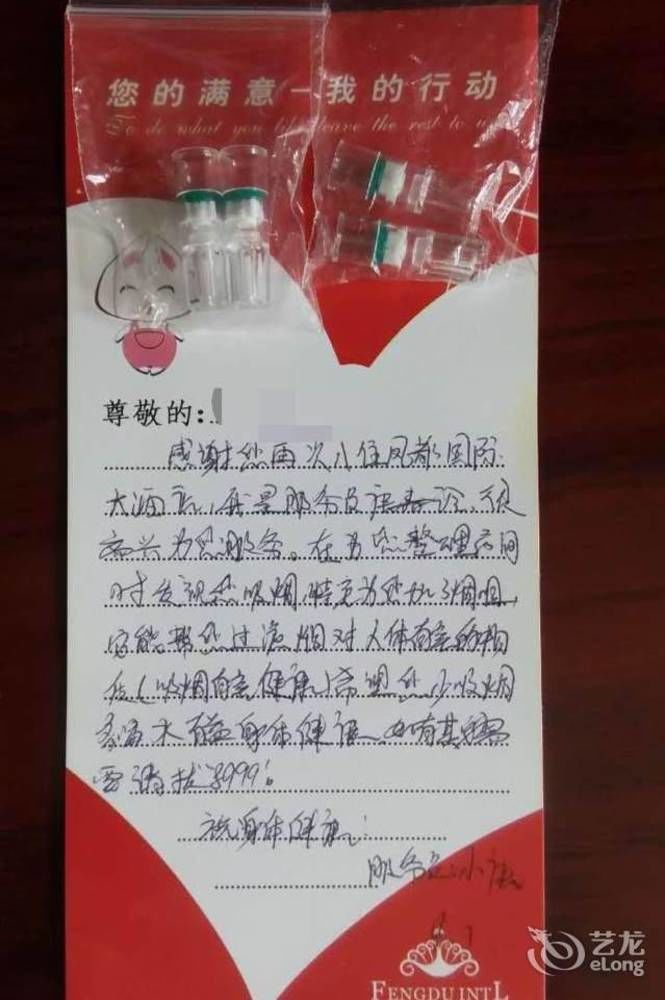 您的满意—我的行动
To do what you like leave the rest to us
尊敬的:
感谢您再次入住凤都国际
大酒店,我是服务员 很
高兴为您服务。在为您整理房间
时发现您吸烟,特意为您加了烟咀,
它能帮您过滤烟对人体有害的物
质(吸烟有害健康)希望您少吸烟
多喝水 身体健康,如有其它需
要请拨打999!
祝:身体健康!
服务员:小
FENGDU INT'L
艺龙
eLong